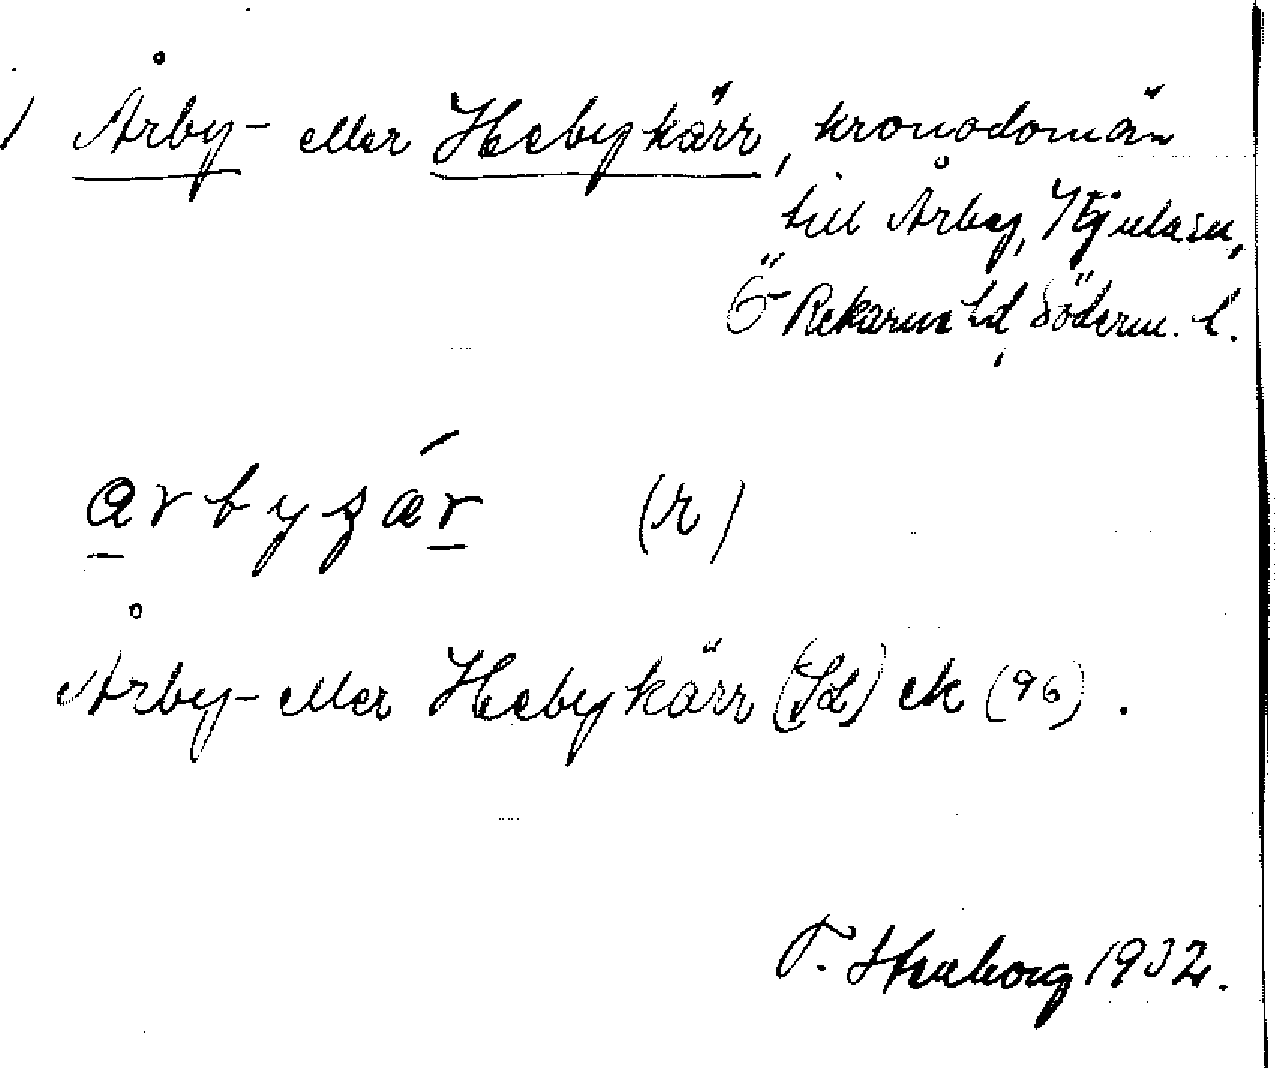 1 Årby- eller Hebykärr, kronodomän
till Årby, Kjula sn,
Ö Rekarne hd, Söderm. l.
arbyʒár (r)
Årby- eller Hebykärr (Jd) ek (96).
T. 1932.